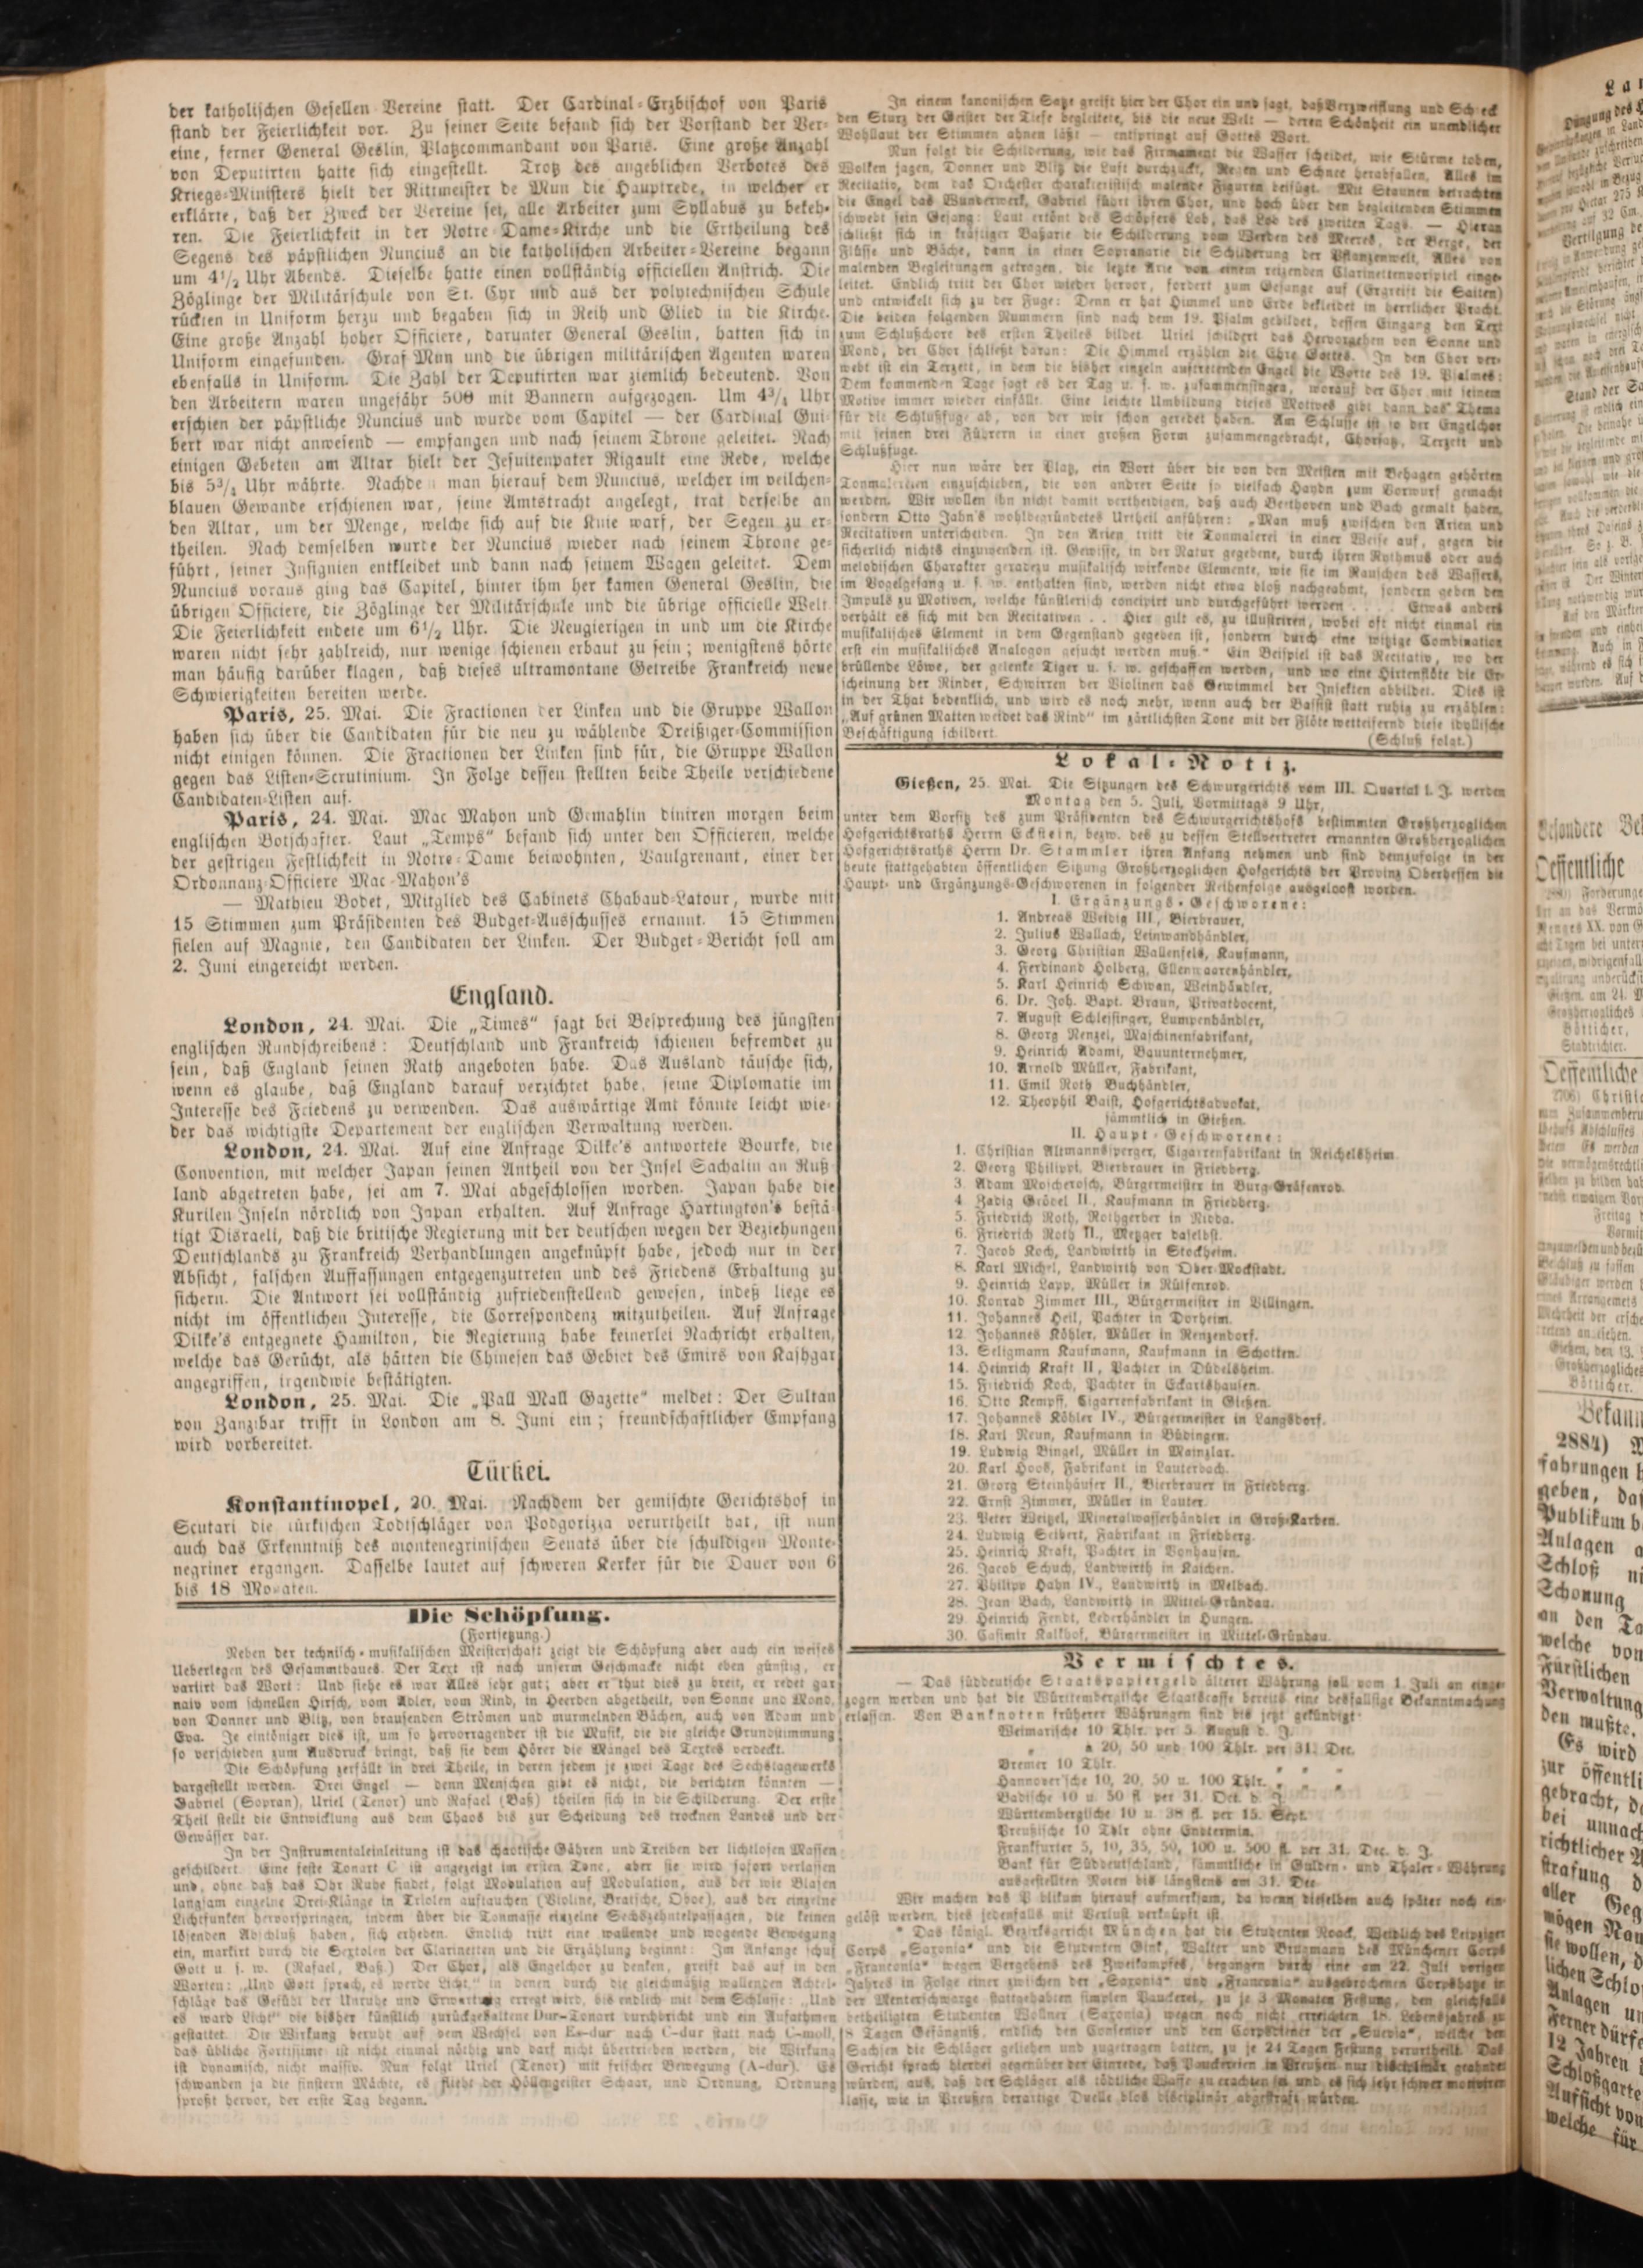 der katholischen Gesellen-Vereine statt. Der Cardinal-Erzbischof von Paris
stand der Feierlichkeit vor. Zu seiner Seite befand sich der Vorstand der Ver-
eine, ferner General Geslin, Platzcommandant von Paris. Eine große Anzahl
von Deputirten hatte sich eingestellt. Trotz des angeblichen Verbotes des
Kriegs-Ministers hielt der Rittmeister de Mun die Hauptrede, in welcher er
erklärte, daß der Zweck der Vereine sei, alle Arbeiter zum Syllabus zu bekeh-
ren. Die Feierlichkeit in der Notre-Dame-Kirche und die Ertheilung des
Segens des päpstlichen Nuncius an die katholischen Arbeiter-Vereine begann
um 4½ Uhr Abends. Dieselbe hatte einen vollständig officiellen Anstrich. Die
Zöglinge der Militärschule von St. Cyr und aus der polytechnischen Schule
rückten in Uniform herzu und begaben sich in Reih und Glied in die Kirche.
Eine große Anzahl hoher Officiere, darunter General Geslin, hatten sich in
Uniform eingefunden. Graf Mun und die übrigen militärischen Agenten waren
ebenfalls in Uniform. Die Zahl der Deputirten war ziemlich bedeutend. Von
den Arbeitern waren ungefähr 500 mit Bannern aufgezogen. Um 4¾ Uhr
erschien der päpstliche Nuncius und wurde vom Capitel — der Cardinal Gui-
bert war nicht anwesend — empfangen und nach seinem Throne geleitet. Nach
einigen Gebeten am Altar hielt der Jesuitenpater Rigault eine Rede, welche
bis 5¾ Uhr währte. Nachdem man hierauf dem Nuncius, welcher im veilchen-
blauen Gewande erschienen war, seine Amtstracht angelegt, trat derselbe an
den Altar, um der Menge, welche sich auf die Knie warf, der Segen zu er-
theilen. Nach demselben wurde der Nuncius wieder nach seinem Throne ge-
führt, seiner Insignien entkleidet und dann nach seinem Wagen geleitet. Dem
Nuncius voraus ging das Capitel, hinter ihm her kamen General Geslin, die
übrigen Officiere, die Zöglinge der Militärschule und die übrige officielle Welt.
Die Feierlichkeit endete um 6½ Uhr. Die Neugierigen in und um die Kirche
waren nicht sehr zahlreich, nur wenige schienen erbaut zu sein; wenigstens hörte
man häufig darüber klagen, daß dieses ultramontane Getreibe Frankreich neue
Schwierigkeiten bereiten werde.
Paris, 25. Mai. Die Fractionen der Linken und die Gruppe Wallon
haben sich über die Candidaten für die neu zu wählende Dreißiger-Commission
nicht einigen können. Die Fractionen der Linken sind für, die Gruppe Wallon
gegen das Listen-Scrutinium. In Folge dessen stellten beide Theile verschiedene
Candidaten-Listen auf.
Paris, 24. Mai. Mac Mahon und Gemahlin diniren morgen beim
englischen Botschafter. Laut „Temps“ befand sich unter den Officieren, welche
der gestrigen Festlichkeit in Notre-Dame beiwohnten, Vaulgrenant, einer der
Ordonnanz-Officiere Mac-Mahon's
— Mathieu Bodet, Mitglied des Cabinets Chabaud-Latour, wurde mit
15 Stimmen zum Präsidenten des Budget-Ausschusses ernannt. 15 Stimmen
fielen auf Magnie, den Candidaten der Linken. Der Budget-Bericht soll am
2. Juni eingereicht werden.
England.
London, 24. Mai. Die „Times“ sagt bei Besprechung des jüngsten
englischen Rundschreibens: Deutschland und Frankreich schienen befremdet zu
sein, daß England seinen Rath angeboten habe. Das Ausland täusche sich,
wenn es glaube, daß England darauf verzichtet habe, seine Diplomatie im
Interesse des Friedens zu verwenden. Das auswärtige Amt könnte leicht wie-
der das wichtigste Departement der englischen Verwaltung werden.
London, 24. Mai. Auf eine Anfrage Dilke's antwortete Bourke, die
Convention, mit welcher Japan seinen Antheil von der Insel Sachalin an Ruß-
land abgetreten habe, sei am 7. Mai abgeschlossen worden. Japan habe die
Kurilen-Inseln nördlich von Japan erhalten. Auf Anfrage Hartington's bestä-
tigt Disraeli, daß die britische Regierung mit der deutschen wegen der Beziehungen
Deutschlands zu Frankreich Verhandlungen angeknüpft habe, jedoch nur in der
Absicht, falschen Auffassungen entgegenzutreten und des Friedens Erhaltung zu
sichern. Die Antwort sei vollständig zufriedenstellend gewesen, indeß liege es
nicht im öffentlichen Interesse, die Correspondenz mitzutheilen. Auf Anfrage
Dilke's entgegnete Hamilton, die Regierung habe keinerlei Nachricht erhalten,
welche das Gerücht, als hätten die Chinesen das Gebiet des Emirs von Kashgar
angegriffen, irgendwie bestätigten.
London, 25. Mai. Die „Pall Mall Gazette“ meldet: Der Sultan
von Zanzibar trifft in London am 8. Juni ein; freundschaftlicher Empfang
wird vorbereitet.
Türkei.
Konstantinopel, 20. Mai. Nachdem der gemischte Gerichtshof in
Scutari die türkischen Todtschläger von Podgorizza verurtheilt hat, ist nun
auch das Erkenntniß des montenegrinischen Senats über die schuldigen Monte-
negriner ergangen. Dasselbe lautet auf schweren Kerker für die Dauer von 6
bis 18 Monaten.
Die Schöpfung.
(Fortsetzung.)
Neben der technisch-musikalischen Meisterschaft zeigt die Schöpfung aber auch ein weises
Ueberlegen des Gesammtbaues. Der Text ist nach unserm Geschmacke nicht eben günstig, er
variirt das Wort: Und siehe es war Alles sehr gut; aber er thut dies zu breit, er redet gar
naiv vom schnellen Hirsch, vom Adler, vom Rind, in Heerden abgetheilt, von Sonne und Mond,
von Donner und Blitz, von brausenden Strömen und murmelnden Bächen, auch von Adam und
Eva. Je eintöniger dies ist, um so hervorragender ist die Musik, die die gleiche Grundstimmung
so verschieden zum Ausdruck bringt, daß sie dem Hörer die Mängel des Textes verdeckt.
Die Schöpfung zerfällt in drei Theile, in deren jedem je zwei Tage des Sechstagewerks
dargestellt werden. Drei Engel — denn Menschen gibt es nicht, die berichten könnten —
Gabriel (Sopran), Uriel (Tenor) und Rafael (Baß) theilen sich in die Schilderung. Der erste
Theil stellt die Entwicklung aus dem Chaos bis zur Scheidung des trocknen Landes und der
Gewässer dar.
In der Instrumentaleinleitung ist das chaotische Gähren und Treiben der lichtlosen Massen
geschildert. Eine feste Tonart C ist angezeigt im ersten Tone, aber sie wird sofort verlassen
und, ohne daß das Ohr Ruhe findet, folgt Modulation auf Modulation, aus der wie Blasen
langsam einzelne Drei-Klänge in Triolen auftauchen (Violine, Bratsche, Oboe), aus der einzelne
Lichtfunken hervorspringen, indem über die Tonmasse einzelne Sechszehntelpassagen, die keinen
lösenden Abschluß haben, sich erheben. Endlich tritt eine wallende und wogende Bewegung
ein, markirt durch die Sextolen der Clarinetten und die Erzählung beginnt: Im Anfange schuf
Gott u. s. w. (Rafael, Baß.) Der Chor, als Engelchor zu denken, greift das auf in den
Worten: „Und Gott sprach, es werde Licht,“ in denen durch die gleichmäßig wallenden Achtel-
schläge das Gefühl der Unruhe und Erwartung erregt wird, bis endlich mit dem Schlusse: „Und
es ward Licht“ die bisher künstlich zurückgehaltene Dur-Tonart durchbricht und ein Aufathmen
gestattet. Die Wirkung beruht auf dem Wechsel von Es-dur nach C-dur statt nach C-moll,
das übliche Fortissime ist nicht einmal nöthig und darf nicht übertrieben werden, die Wirkung
ist dynamisch, nicht massiv. Nun folgt Uriel (Tenor) mit frischer Bewegung (A-dur). Es
schwanden ja die finstern Mächte, es flieht der Höllengeister Schaar, und Ordnung, Ordnung
sproßt hervor, der erste Tag begann.
In einem kanonischen Satze greift hier der Chor ein und sagt, daß Verzweiflung und Schreck
den Sturz der Geister der Tiefe begleitete, bis die neue Welt — deren Schönheit ein unendlicher
Wohllaut der Stimmen ahnen läßt — entspringt auf Gottes Wort.
Nun folgt die Schilderung, wie das Firmament die Wasser scheidet, wie Stürme toben,
Wolken jagen, Donner und Blitz die Luft durchzuckt, Regen und Schnee herabfallen, Alles im
Recitativ, dem das Orchester charakteristisch malende Figuren beifügt. Mit Staunen betrachten
die Engel das Wunderwerk, Gabriel führt ihren Chor, und hoch über den begleitenden Stimmen
schwebt sein Gesang: Laut ertönt des Schöpfers Lob, das Lob des zweiten Tags. — Hieran
schließt sich in kräftiger Baßarie die Schilderung vom Werden des Meeres, der Berge, der
Flüsse und Bäche, dann in einer Sopranarie die Schilderung der Pflanzenwelt, Alles von
malenden Begleitungen getragen, die letzte Arie von einem reizenden Clarinettenvorspiel einge-
leitet. Endlich tritt der Chor wieder hervor, fordert zum Gesange auf (Ergreift die Saiten)
und entwickelt sich zu der Fuge: Denn er hat Himmel und Erde bekleidet in herrlicher Pracht.
Die beiden folgenden Nummern sind nach dem 19. Psalm gebildet, dessen Eingang den Text
zum Schlußchore des ersten Theiles bildet. Uriel schildert das Hervorgehen von Sonne und
Mond, der Chor schließt daran: Die Himmel erzählen die Ehre Gottes. In den Chor ver-
webt ist ein Terzett, in dem die bisher einzeln auftretenden Engel die Worte des 19. Psalmes:
Dem kommenden Tage sagt es der Tag u. s. w. zusammensingen, worauf der Chor mit seinem
Motive immer wieder einfällt. Eine leichte Umbildung dieses Motives gibt dann das Thema
für die Schlußfuge ab, von der wir schon geredet haben. Am Schlusse ist so der Engelchor
mit seinen drei Führern in einer großen Form zusammengebracht, Chorsatz, Terzett und
Schlußfuge.
Hier nun wäre der Platz, ein Wort über die von den Meisten mit Behagen gehörten
Tonmalereien einzuschieben, die von andrer Seite so vielfach Haydn zum Vorwurf gemacht
werden. Wir wollen ihn nicht damit vertheidigen, daß auch Beethoven und Bach gemalt haben,
sondern Otto Jahn's wohlbegründetes Urtheil anführen: „Man muß zwischen den Arien und
Recitativen unterscheiden. In den Arien tritt die Tonmalerei in einer Weise auf, gegen die
sicherlich nichts einzuwenden ist. Gewisse, in der Natur gegebene, durch ihren Rythmus oder auch
melodischen Charakter geradezu musikalisch wirkende Elemente, wie sie im Rauschen des Wassers,
im Vogelgesang u. s. w. enthalten sind, werden nicht etwa bloß nachgeahmt, sondern geben den
Impuls zu Motiven, welche künstlerisch concipirt und durchgeführt werden . . . . Etwas anders
verhält es sich mit den Recitativen . . Hier gilt es, zu illustriren, wobei oft nicht einmal ein
musikalisches Element in dem Gegenstand gegeben ist, sondern durch eine witzige Combination
erst ein musikalisches Analogon gesucht werden muß.“ Ein Beispiel ist das Recitativ, wo der
brüllende Löwe, der gelenke Tiger u. s. w. geschaffen werden, und wo eine Hirtenflöte die Er-
scheinung der Rinder, Schwirren der Violinen das Gewimmel der Insekten abbildet. Dies ist
in der That bedenklich, und wird es noch mehr, wenn auch der Bassist statt ruhig zu erzählen:
„Auf grünen Matten weidet das Rind“ im zärtlichsten Tone mit der Flöte wetteifernd diese idyllische
Beschäftigung schildert.
(Schluß folgt.)
Lokal-Notiz.
Gießen, 25. Mai. Die Sitzungen des Schwurgerichts vom III. Quartal l. J. werden
Montag den 5. Juli, Vormittags 9 Uhr,
unter dem Vorsitz des zum Präsidenten des Schwurgerichtshofs bestimmten Großherzoglichen
Hofgerichtsraths Herrn Eckstein, bezw. des zu dessen Stellvertreter ernannten Großherzoglichen
Hofgerichtsraths Herrn Dr. Stammler ihren Anfang nehmen und sind demzufolge in der
heute stattgehabten öffentlichen Sitzung Großherzoglichen Hofgerichts der Provinz Oberhessen die
Haupt- und Ergänzungs-Geschworenen in folgender Reihenfolge ausgeloost worden.
I. Ergänzungs-Geschworene:
1. Andreas Weidig III., Bierbrauer,
2. Julius Wallach, Leinwandhändler,
3. Georg Christian Wallenfels, Kaufmann,
4. Ferdinand Holberg, Ellenwaarenhändler,
5. Karl Heinrich Schwan, Weinhändler,
6. Dr. Joh. Bapt. Braun, Privatdocent,
7. August Schlessinger, Lumpenhändler,
8. Georg Renzel, Maschinenfabrikant,
9. Heinrich Adami, Bauunternehmer,
10. Arnold Müller, Fabrikant,
11. Emil Roth Buchhändler,
12. Theophil Baist, Hofgerichtsadvokat,
sämmtlich in Gießen.
II. Haupt-Geschworene:
1. Christian Altmannsperger, Cigarrenfabrikant in Reichelsheim.
2. Georg Philippi, Bierbrauer in Friedberg.
3. Adam Moscherosch, Bürgermeister in Burg-Gräfenrod.
4 Zadig Grödel II., Kaufmann in Friedberg.
5. Friedrich Roth, Rothgerber in Nidda.
6. Friedrich Roth II., Metzger daselbst.
7. Jacob Koch, Landwirth in Stockheim.
8. Karl Michel, Landwirth von Ober-Mockstadt.
9. Heinrich Lapp, Müller in Rülfenrod.
10. Konrad Zimmer III., Bürgermeister in Villingen.
11. Johannes Heil, Pachter in Dorheim.
12. Johannes Köhler, Müller in Renzendorf.
13. Seligmann Kaufmann, Kaufmann in Schotten.
14. Heinrich Kraft II, Pachter in Düdelsheim.
15. Friedrich Koch, Pachter in Eckartshausen.
16. Otto Kempff, Cigarrenfabrikant in Gießen.
17. Johannes Köhler IV., Bürgermeister in Langsdorf.
18. Karl Neun, Kaufmann in Büdingen.
19. Ludwig Bingel, Müller in Mainzlar.
20. Karl Hoos, Fabrikant in Lauterbach.
21. Georg Steinhäuser II., Bierbrauer in Friedberg.
22. Ernst Zimmer, Müller in Lauter.
23. Peter Weitzel, Mineralwasserhändler in Groß-Karben.
24. Ludwig Seibert, Fabrikant in Friedberg.
25. Heinrich Kraft, Pachter in Vonhausen.
26. Jacob Schuch, Landwirth in Kaichen.
27. Philipp Hahn IV., Landwirth in Melbach.
28. Jean Bach, Landwirth in Mittel-Gründau.
29. Heinrich Fendt, Lederhändler in Hungen.
30. Casimir Kalkhof, Bürgermeister in Mittel-Gründau.
Vermischtes.
— Das süddeutsche Staatspapiergeld älterer Währung soll vom 1. Juli an einge-
zogen werden und hat die Württembergische Staatscasse bereits eine desfallsige Bekanntmachung
erlassen. Von Banknoten früherer Währungen sind bis jetzt gekündigt:
Weimarische 10 Thlr. per 5. August d. J.
„ à 20, 50 und 100 Thlr. per 31. Dec.
Bremer 10 Thlr. „ „ „
Hannover'sche 10, 20, 50 u. 100 Thlr. „ „ „
Badische 10 u. 50 fl. per 31. Oct. d. J.
Württembergische 10 u. 38 fl. per 15. Sept.
Preußische 10 Thlr ohne Endtermin.
Frankfurter 5, 10, 35, 50, 100 u. 500 fl. per 31. Dec. d. J.
Bank für Süddeutschland, sämmtliche in Gulden- und Thaler-Währung
ausgestellten Noten bis längstens am 31. Dec.
Wir machen das Publikum hierauf aufmerksam, da wenn dieselben auch später noch ein-
gelöst werden, dies jedenfalls mit Verlust verknüpft ist.
* Das königl. Bezirksgericht München hat die Studenten Noack, Weidlich des Leipziger
Corps „Saxonia“ und die Studenten Gink, Walter und Brugmann des Münchener Corps
„Franconia“ wegen Vergehens des Zweikampfes, begangen durch eine am 22. Juli vorigen
Jahres in Folge einer zwischen der „Saxonia“ und „Franconia“ ausgebrochenen Corpshatze in
der Menterschwaige stattgehabten simplen Paukerei, zu je 3 Monaten Festung, den gleichfalls
betheiligten Studenten Wollner (Saxonia) wegen noch nicht erreichten 18. Lebensjahres zu
8 Tagen Gefängniß, endlich den Consenior und den Corpsdiener der „Suevia“, welche den
Sachsen die Schläger geliehen und zugetragen hatten, zu je 24 Tagen Festung verurtheilt. Das
Gericht sprach hierbei gegenüber der Einrede, daß Paukereien in Preußen nur disciplinär geahndet
würden, aus, daß der Schläger als tödtliche Waffe zu erachten sei und es sich sehr schwer motiviren
lasse, wie in Preußen derartige Duelle blos disciplinär abgestraft würden.